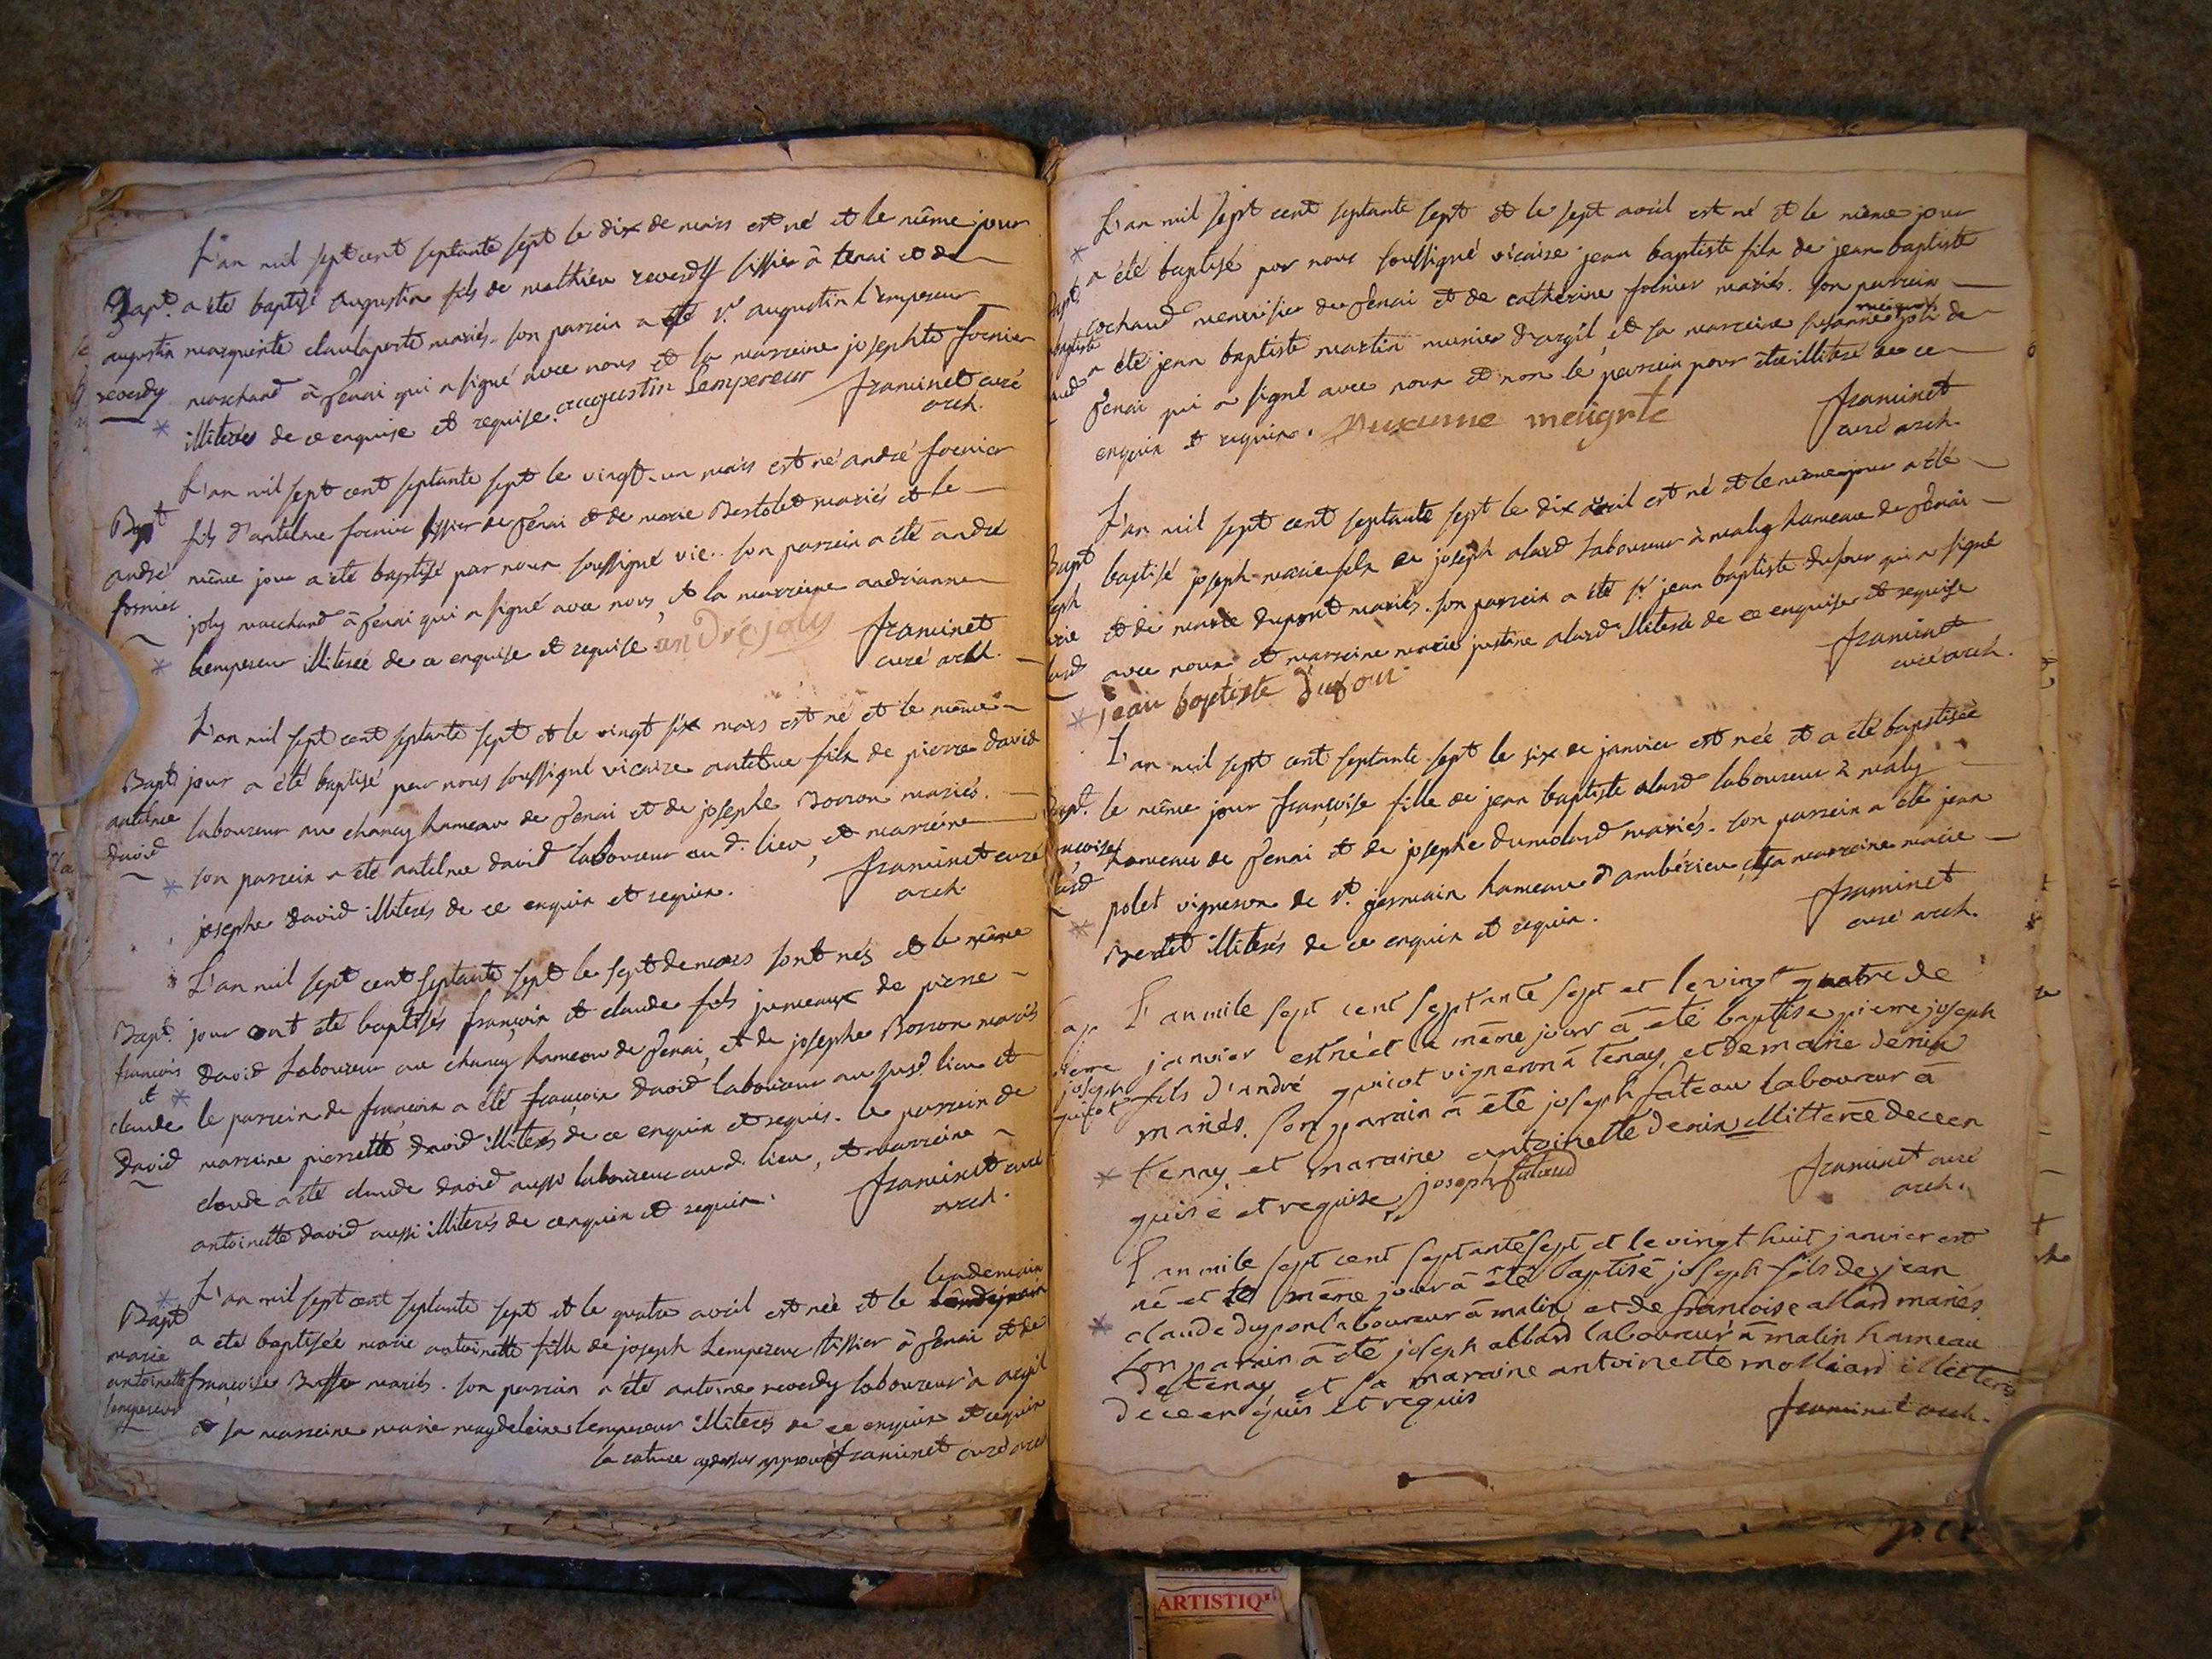 L'an mil sept cent septante sept le dix de mars est né et le même jour
Bapt. a été baptisé augustin fils de mathieu reverdy tissier à tenai et de
augustin marguerite claulaporte mariés. son parrein a été sr. augustin l'empereur
reverdy marchand à Tenai qui a signé avec nous et la marreine josephte fornier
illiterés de ce enquise et requise. augustin Lempereur framinet curé
arch.
L'an mil sept cent septante sept le vingt-un mars est né andré fornier
Bapt fils d'antelme fornier tissier de Tenai et de marie Bertolet mariés et le
andré même jour a été baptisé par nous soussigné vic.. son parrein a été andré
fornier joly marchand à Tenai qui a signé avec nous, et la marreine andrianne
Lempereur illiterée de ce enquise et requise andré joly framinet
curé arch.
L'an mil sept cent septante sept et le vingt six mars est né et le même
Bapt. jour a été baptisé par nous soussigné vicaire antelme fils de pierre david
antelme laboureur au chancy hameau de Tenai et de josephe Borron mariés.
david son parrein a été antelme david laboureur au d. lieu, et marreine
josephe david illiterés de ce enquis et requis. framinet curé
arch
L'an mil sept cent septante sept le sept de mars sont nés et le même
Bapt. jour ont été baptisés françois et claude fils jumeaux de pierre
françois david Laboureur au chancy hameau de Tenai, et de josephe Borron mariés
et
claude le parrein de françois a été françois david laboureur au susd. lieu et
david marreine pierrette david illiterés de ce enquis et requis. le parrein de
claude a été claude david aussi laboureur aud. lieu, et marreine
antoinette david aussi illiterés de ce enquis et requis. framinet curé
arch.
lendemain
L'an mil sept cent septante sept et le quatre avril est née et le
Bapt a été baptisée marie antoinette fille de joseph Lempereur tissier à Tenai et de
marie
antoinette françoise mariés. son parrein a été antoine reverdy laboureur à argil
lempereur
et sa marreine marie magdeleine lempereur illiterés de ce enquis et requis
la rature approuvé framinet curé arch
L'an mil sept cent septante sept et le sept avril est né et le même jour
Bapt a été baptisé par nous soussigné vicaire jean baptiste fils de jean baptiste
cochaud menuisier de Tenai et de catherine fornier mariés. son parrein
baptiste a été jean baptiste martin munier d'argil, et sa marreine susanne joli de
Tenai qui a signé avec nous et non le parrein pour être illiteré de ce
enquis et requis. framinet
curé arch.
L'an mil sept cent septante sept le dix avril est né et le même jour a été
Bapt baptisé joseph marie fils de joseph alard Laboureur à maly hameau de Tenai
et de marie dupont mariés. son parrein a été sr. jean baptiste dufour qui a signé
avec nous et marreine marie justine alard illiterée de ce enquise et requise
jean baptiste dufour framinet
curé arch.
L'an mil sept cent septante sept le six de janvier est née et a été baptisée
Bapt. le même jour françoise fille de jean baptiste alard laboureur à maly
hameau de Tenai et de josephe dumolard mariés. son parrein a été jean
polet vigneron de st. germain hameau d'ambérieu, et sa marreine marie
illiterés de ce enquis et requis. framinet
curé arch.
L'an mile sept cent septante sept et le vingt quatre de
janvier est né et le même jour à été baptisé pierre joseph
joseph fils d'andré guicot vigneron à tenay, et de marie denix
mariés. son parain à été joseph fateau laboureur à
tenay, et maraine antoinette denix illiterée de ce en
quise et requise joseph fataud framinet curé
arch.
L'an mile sept cent septante sept et le vingt huit janvier est
né et le même jour à été baptisé joseph fils de jean
claude dupon laboureur à malin et de françoise allard mariés
son parain à été joseph allard laboureur à malin hameau
de tenay et sa maraine antoinette molliard illiterés
de ce enquis et requis framinet arch.
ARTISTIQ